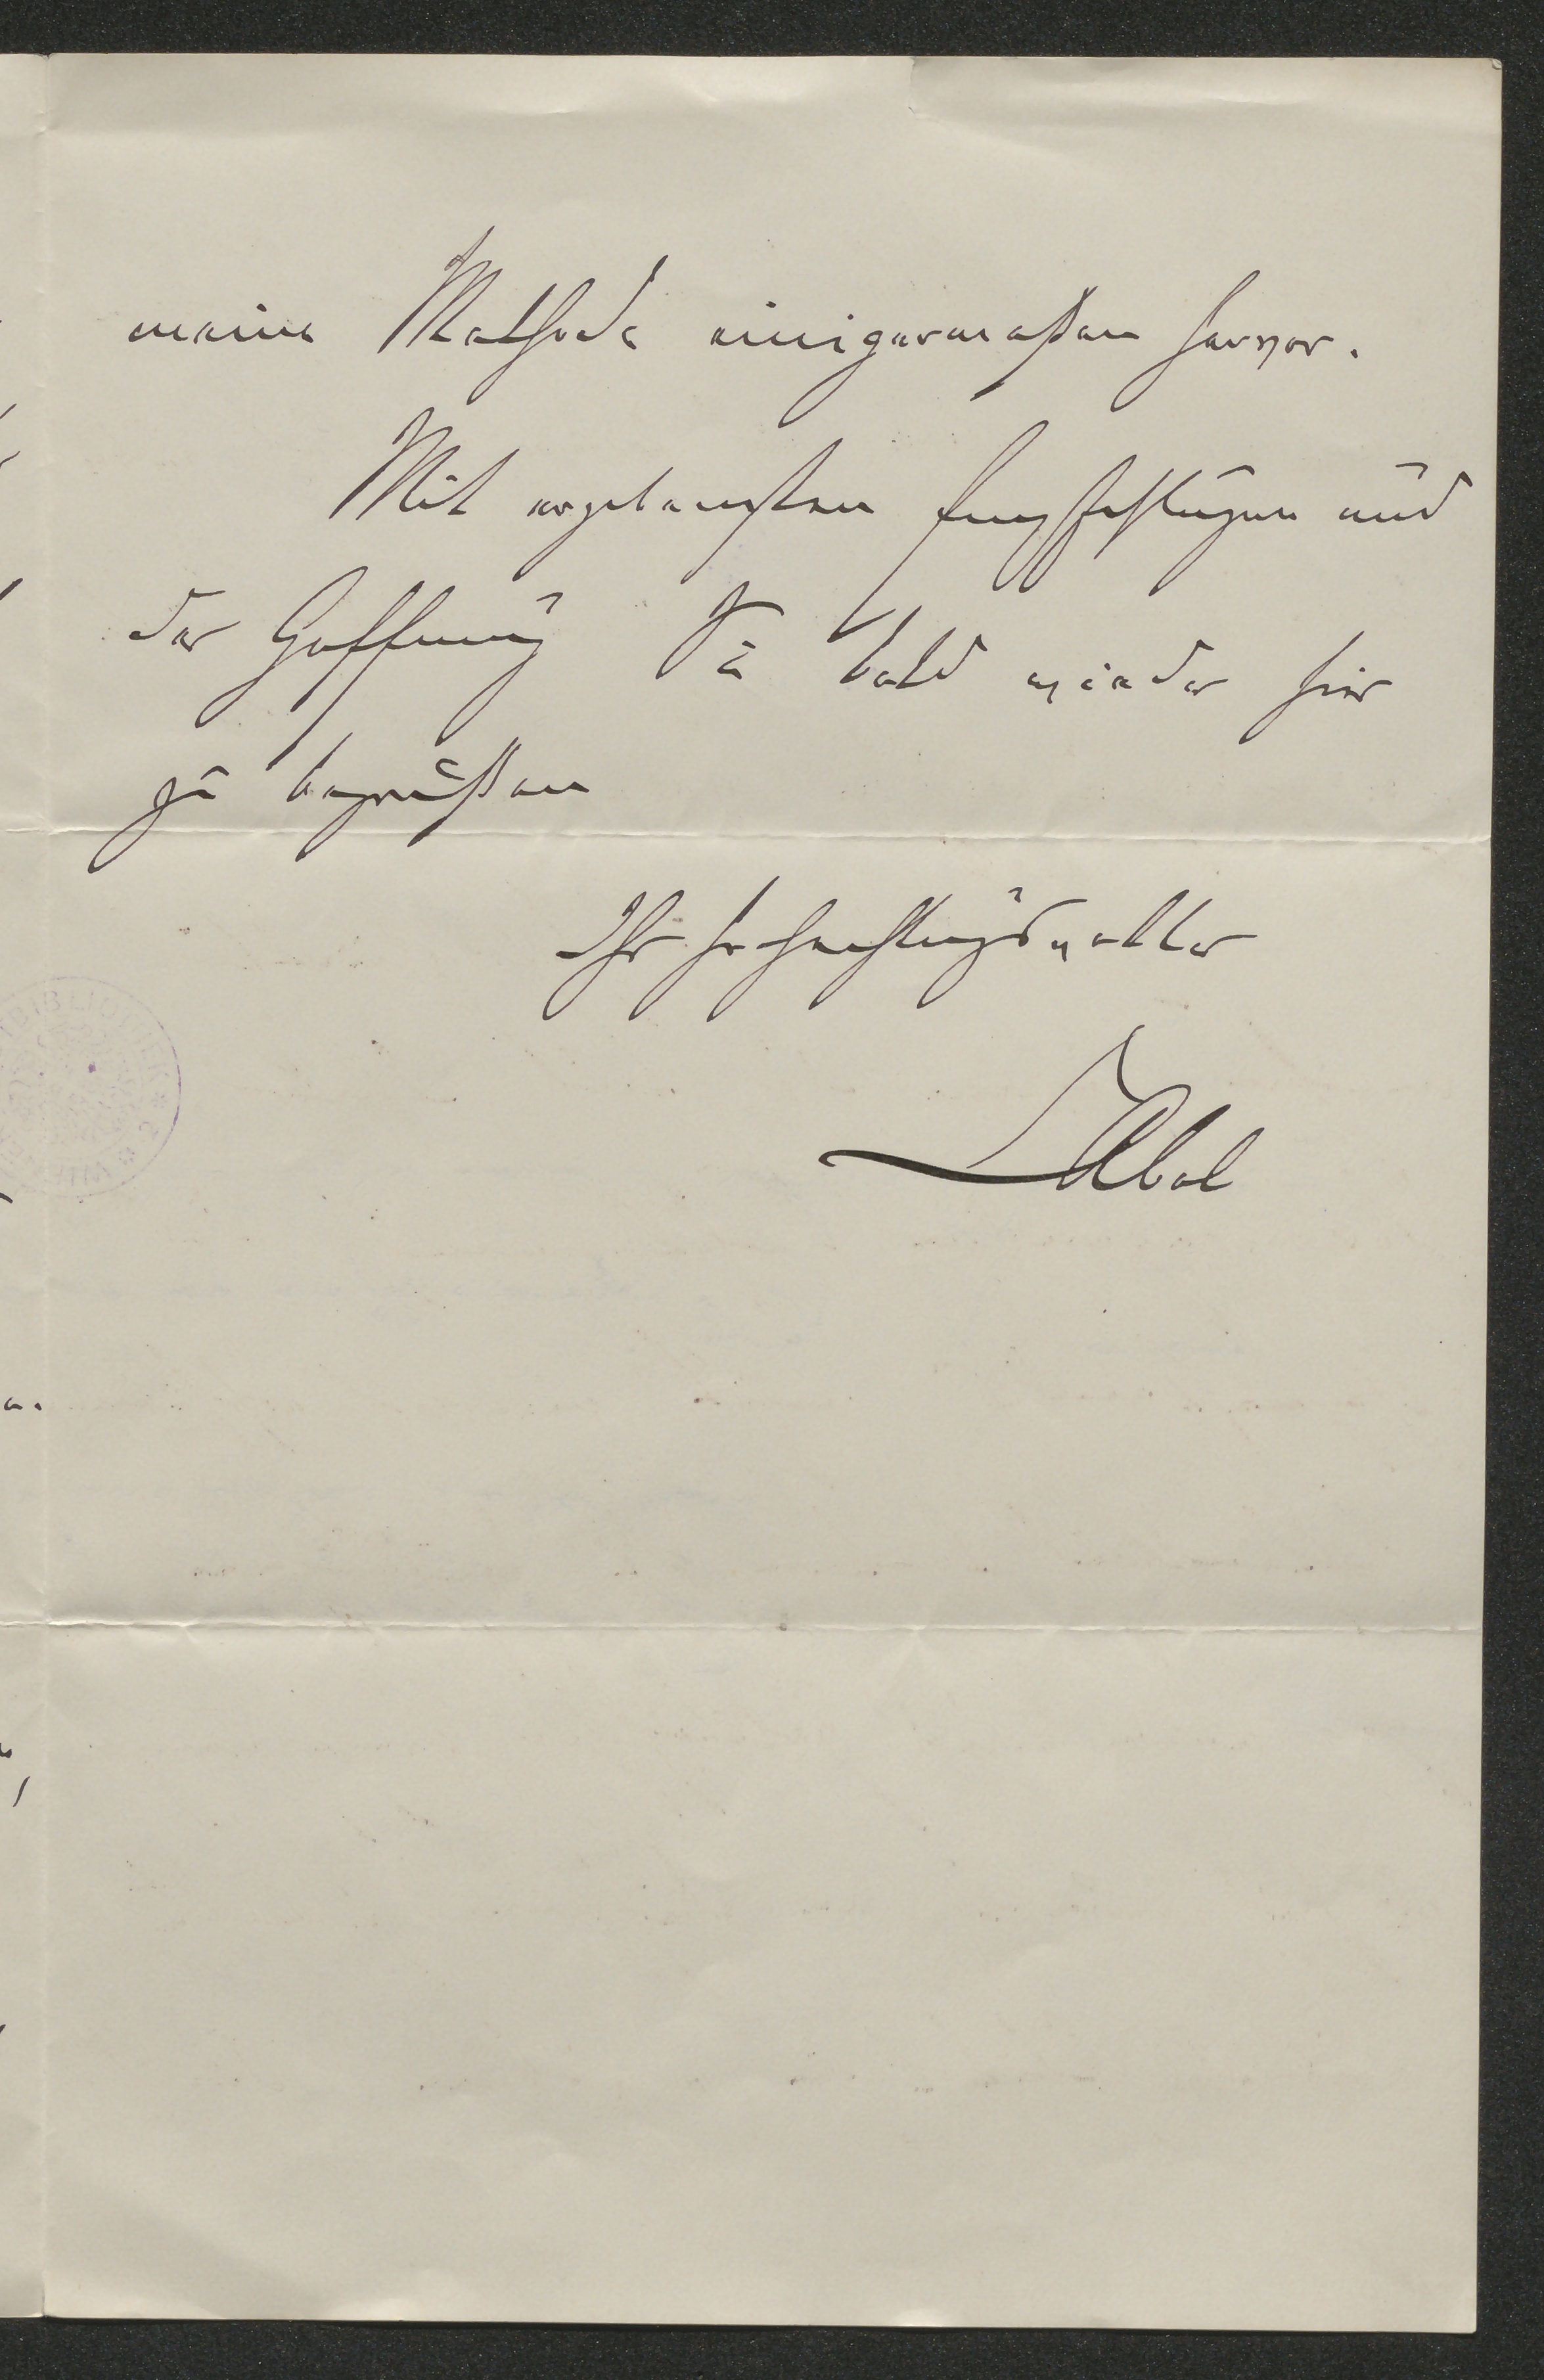 meine Methode einigermaßen hervor.
Mit ergebensten Empfehlungen und
der Hoffnung Sie bald wieder hier
zu begrüßen
Ihr hochachtungsvoller
Abel